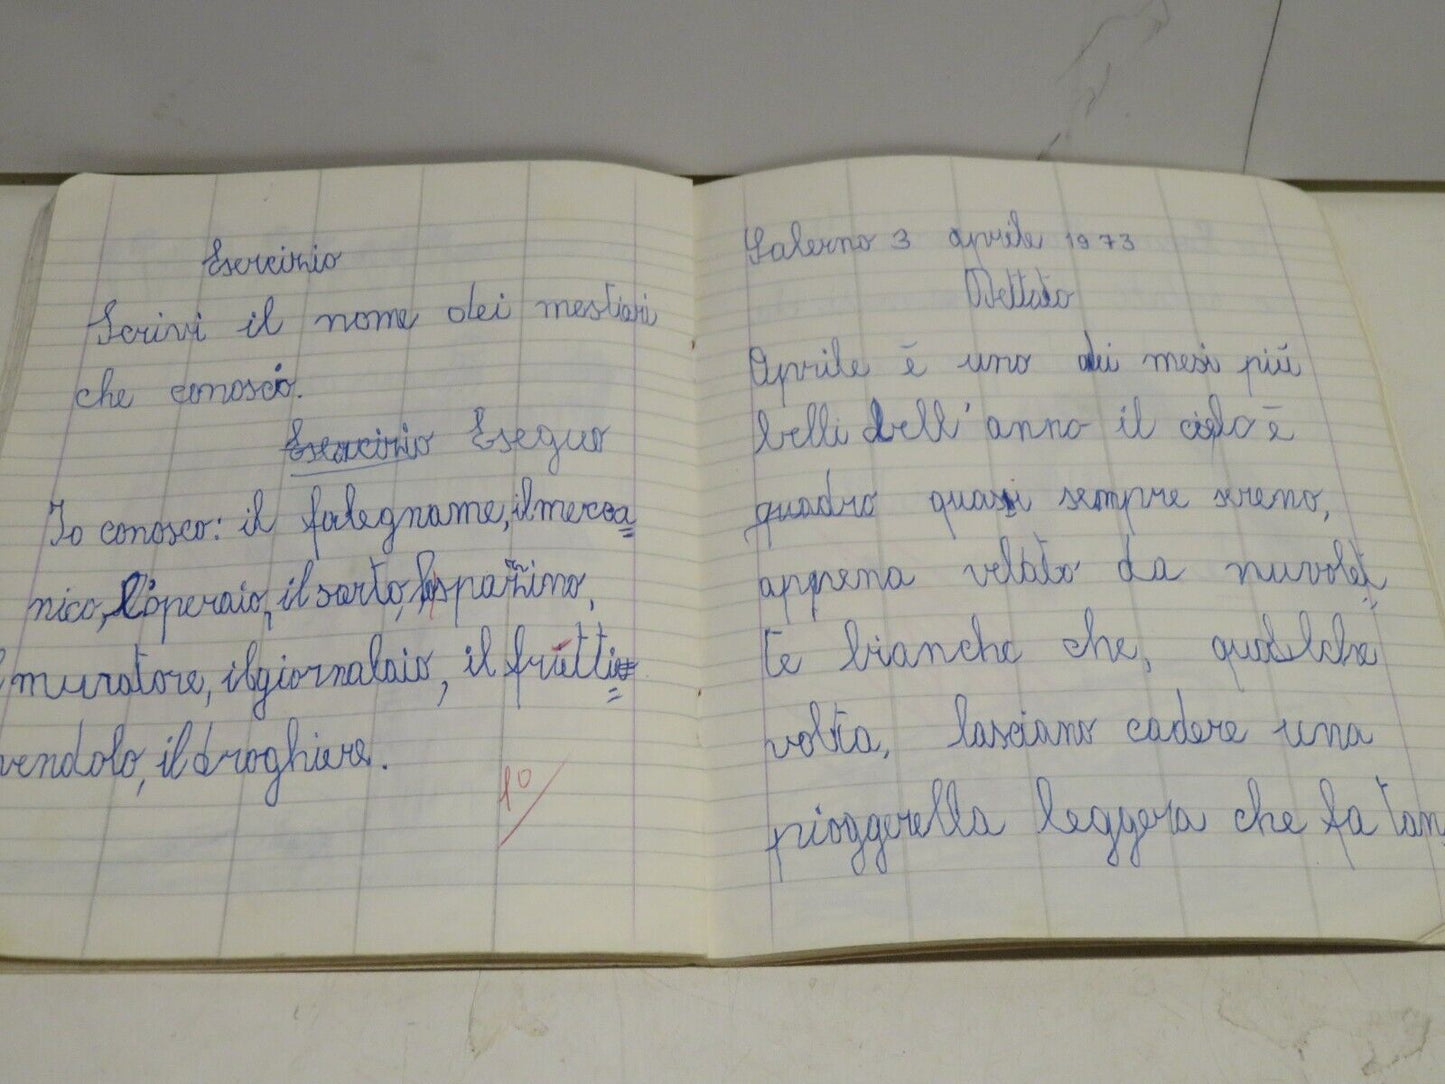 Esercizio
Scrivi il nome dei mestieri
che conosci.
Esercizio Eseguo
Io conosco: il falegname, il mecca=
nico, l'operaio, il sarto, spazzino,
muratore, il giornalaio, il frutti=
vendolo, il droghiere.
10
Salerno 3 aprile 1973
Dettato
Aprile è uno dei mesi più
belli dell'anno il cielo è
quadro quasi sempre sereno,
appena velato da nuvolet=
te bianche che, qualche
volta, lasciano cadere una
pioggerella leggera che fa tan